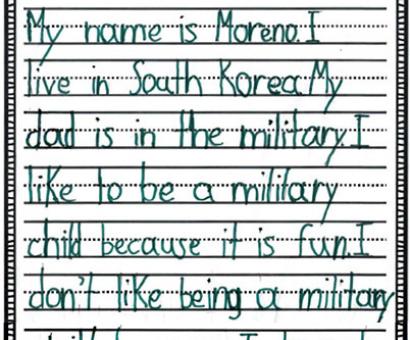 My name is Moreno. I
live in South Korea. My
dad is in the military. I
like to be a military
child because it is fun. I
don't like being a military